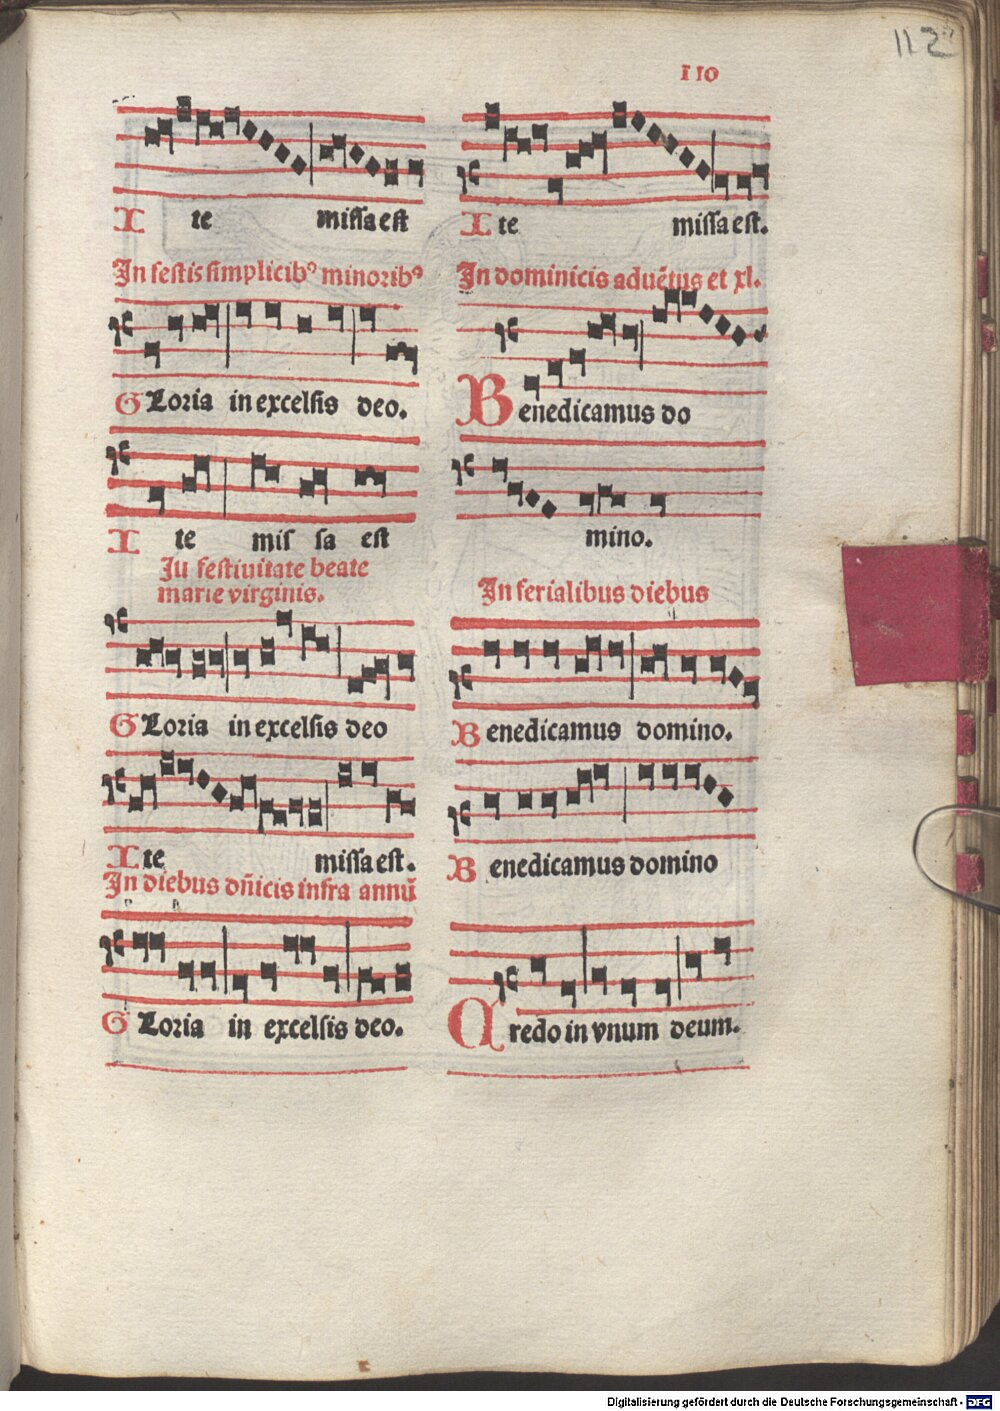 112
110
Ite missa est
In festis simplicibꝰ minoribꝰ
Gloria in excelsis deo.
Ite mis sa est
In festiuitate beate
marie virginis.
Gloria in excelsis deo
Ite missa est.
In diebus dn̄icis infra annū
Gloria in excelsis deo.
Ite missa est.
In dominicis aduētus et xl.
Benedicamus do
mino.
In ferialibus diebus
Benedicamus domino.
Benedicamus domino
Credo in vnum deum.
Digitalisierung gefördert durch die Deutsche Forschungsgemeinschaft - DFG